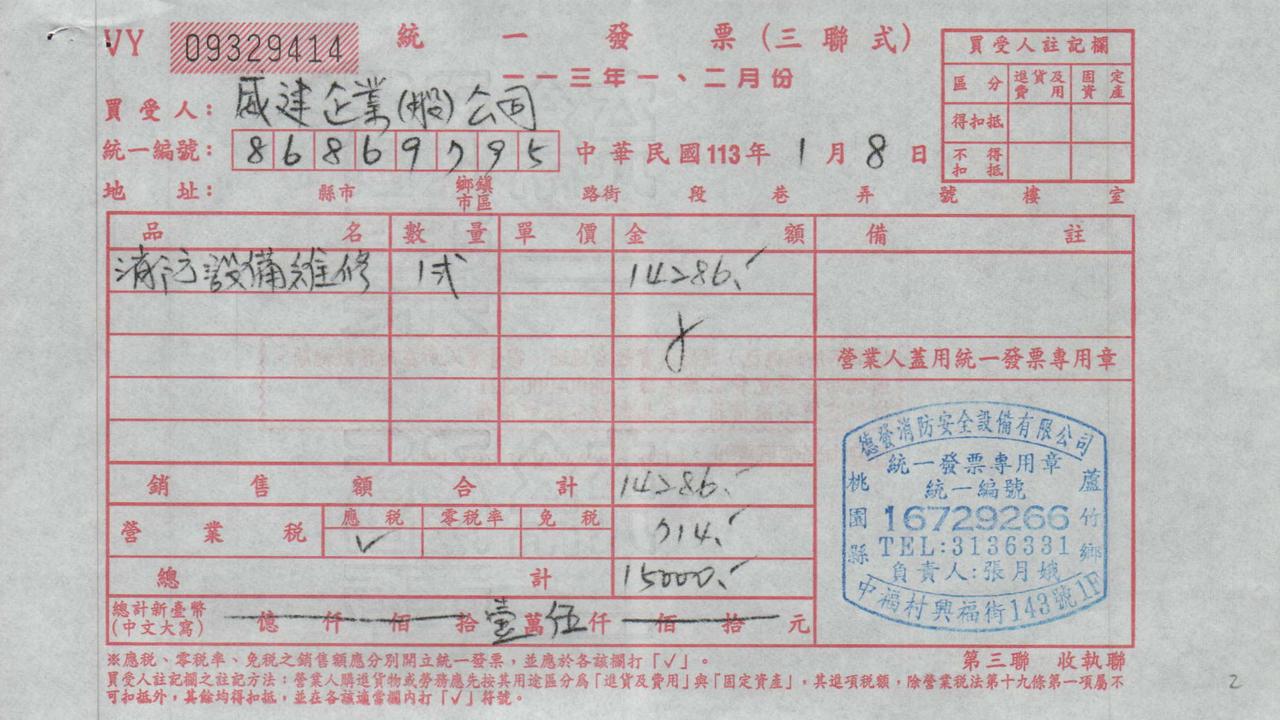 VY 09329414 統一發票(三聯式)
一一三年一、二月份
買受人註記欄
區分 進貨及費用 固定資產
得扣抵
不得扣抵
買受人: 威建企業(股)公司
統一編號: 86869795 中華民國113年1月8日
地址: 縣市 鄉鎮市區 路街 段 巷 弄 號 樓 室
品名 數量 單價 金額 備註
消防設備維修 1式 14286.
營業人蓋用統一發票專用章
銷售額合計 14286.
營業稅 應稅 零稅率 免稅 714.
✓
總計 15000.
總計新臺幣(中文大寫) 億仟佰拾壹萬伍仟佰拾元
德發消防安全設備有限公司
統一發票專用章
統一編號
16729266
TEL:3136331
負責人:張月娥
桃園縣 蘆竹鄉
中福村興福街143號1F
※應稅、零稅率、免稅之銷售額應分別開立統一發票,並應於各該欄打「✓」。
第三聯 收執聯
買受人註記欄之註記方法:營業人購進貨物或勞務應先按其用途區分為「進貨及費用」與「固定資產」,其進項稅額,除營業稅法第十九條第一項屬不
可扣抵外,其餘均得扣抵,並在各該適當欄內打「✓」符號。
2